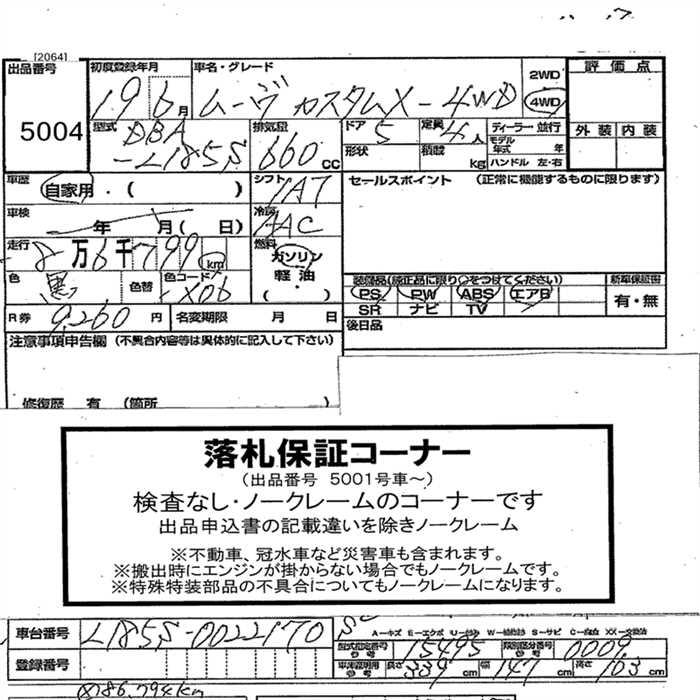 [2064]
出品番号
5004
初度登録年月
19 6 月
車名・グレード
ムーヴ カスタムX-4WD
2WD
4WD
評価点
外装 内装
型式
DBA
-L185S
排気量
660 CC
ドア 5
形状
定員 4 人
積載 kg
ディーラー・並行
モデル年式 年
ハンドル 左・右
車歴
自家用・( )
シフト
IAT
セールスポイント (正常に機能するものに限ります)
車検
年 月( 日)
冷房
AAC
走行
8万6千799 km
燃料
ガソリン
軽油
( ・ )
色
黒
色替
色コード
X06
装備品(純正品に限り○をつけてください)
PS PW ABS エアB
SR ナビ TV
新車保証書
有・無
R券 9,260 円
名変期限 月 日
後日品
注意事項申告欄 (不具合内容等は具体的に記入して下さい)
修復歴 有 (箇所
落札保証コーナー
(出品番号 5001号車～)
検査なし・ノークレームのコーナーです
出品申込書の記載違いを除きノークレーム
※不動車、冠水車など災害車も含まれます。
※搬出時にエンジンが掛からない場合でもノークレームです。
※特殊特装部品の不具合についてもノークレームになります。
車台番号 L185S-0022170
A-キズ E-エクボ U-凹み W-補修跡 S-サビ C-腐食 XX-交換済
型式指定番号 15495 類別区分番号 0009
登録番号
車庫証明用参考 長さ 339 cm 幅 147 cm 高さ 163 cm
86,794km